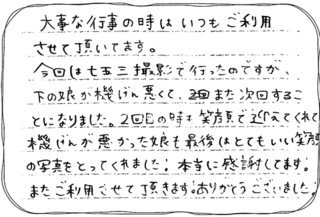 大事な行事の時はいつもご利用
させて頂いてます。
今回は七五三撮影で行ったのですが、
下の娘が機げん悪くて、2回また次回するこ
とになりました。2回目の時も笑顔で迎えてくれて
機げんが悪かった娘も最後はとてもいい笑顔
の写真をとってくれました！本当に感謝してます。
またご利用させて頂きます。ありがとうございました！